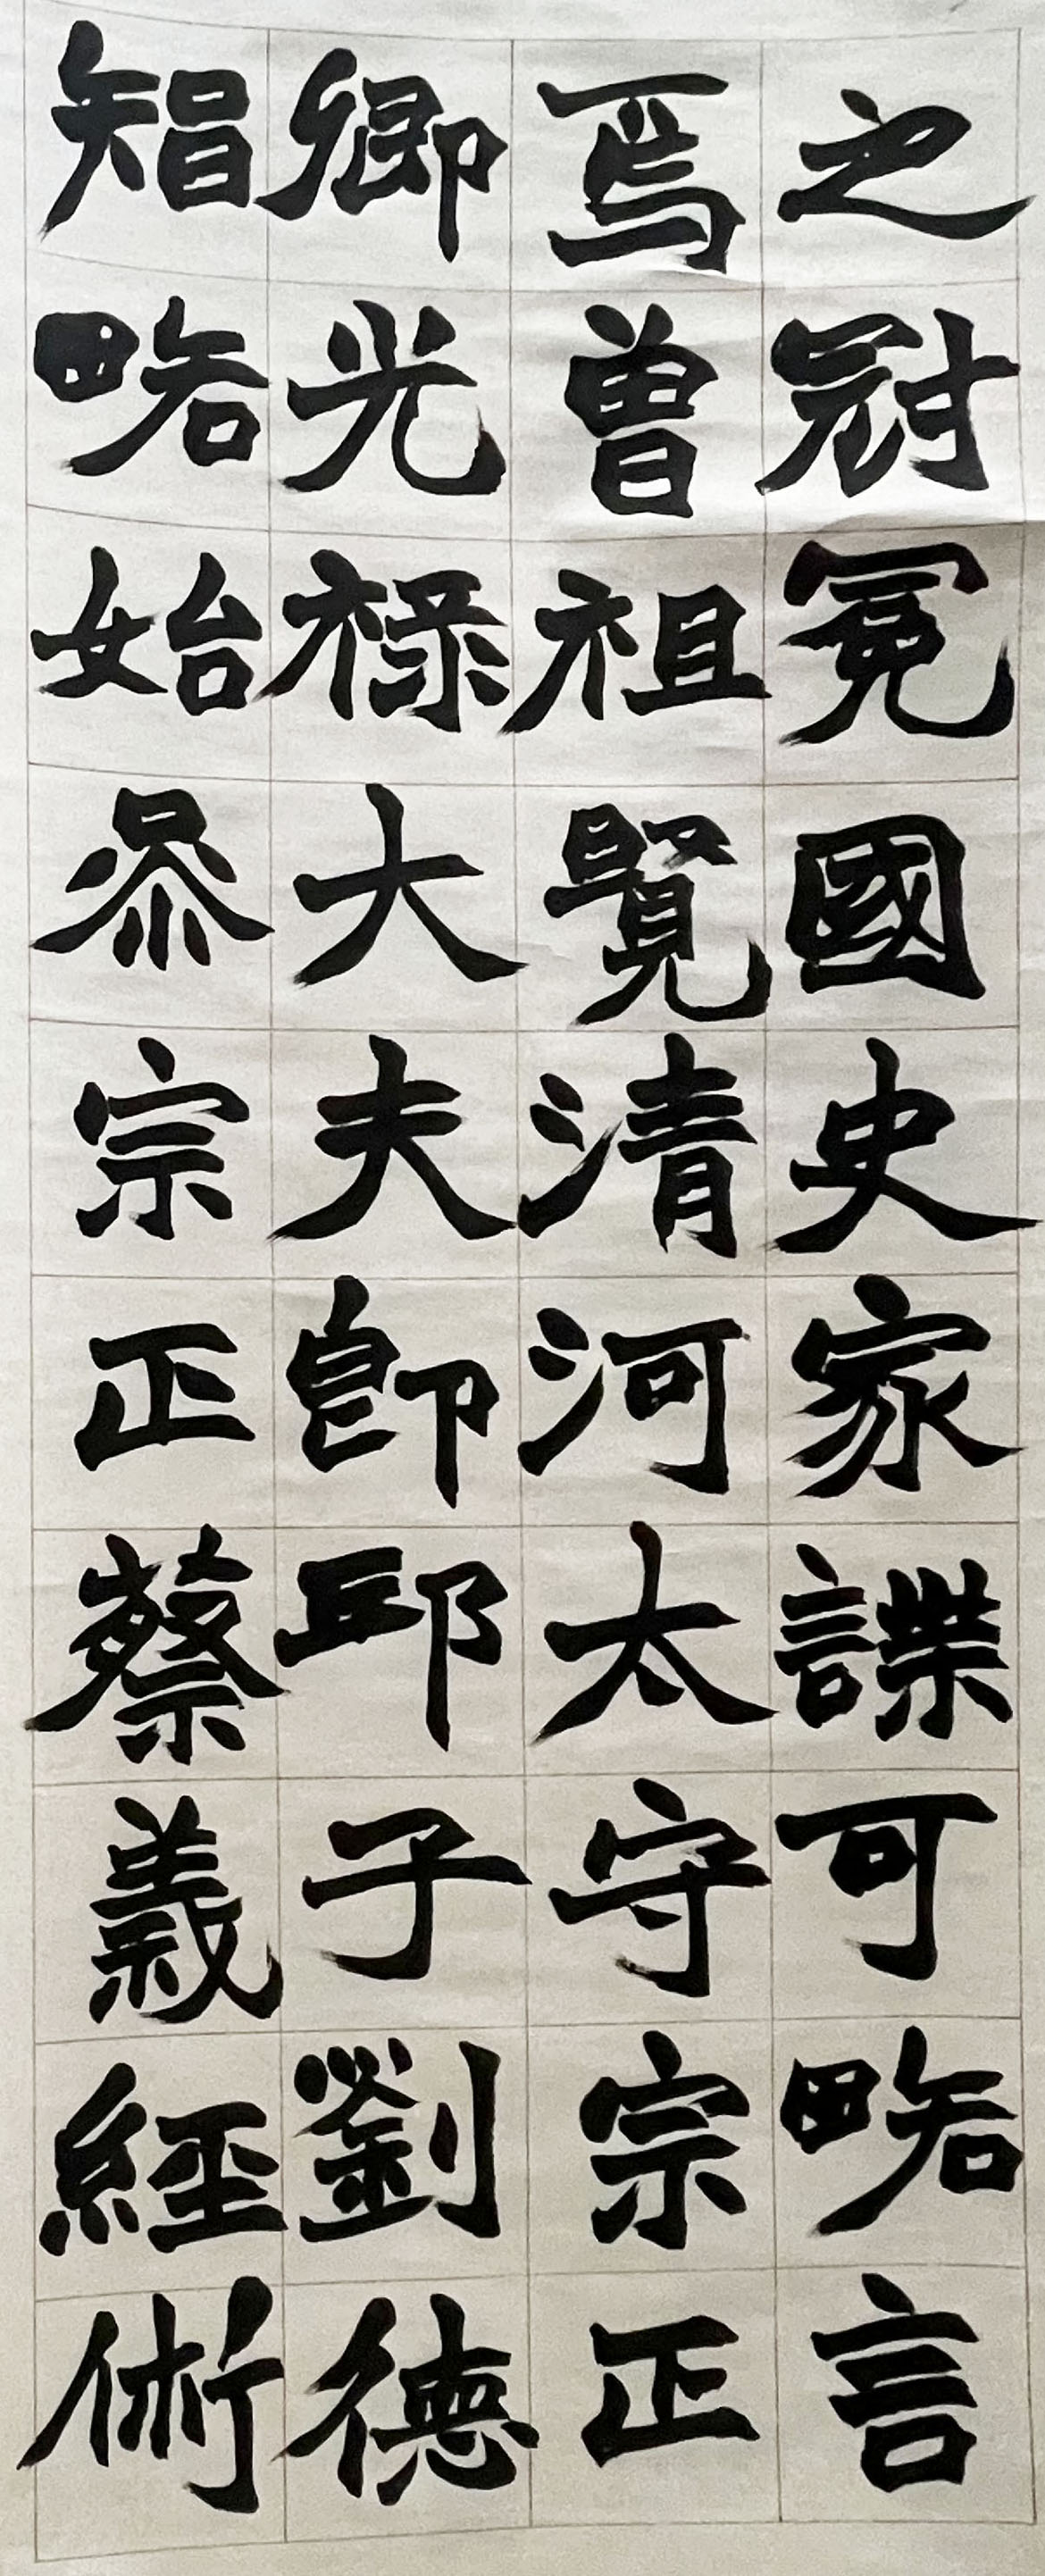 之冠冕國史家諜可略言
焉曾祖覽清河太守宗正
卿光禄大夫即邱子劉德
智略始叅宗正蔡義經術